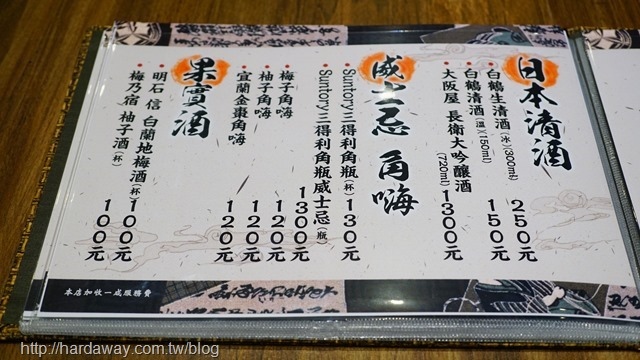 日本清酒
白鶴生清酒(冰)(300ml) 250元
白鶴清酒(溫)(150ml) 150元
大阪屋 長衛大吟釀酒(720ml) 1300元
威士忌 角嗨
Suntory三得利角瓶(杯) 130元
Suntory三得利角瓶威士忌(瓶) 1300元
梅子角嗨 120元
柚子角嗨 120元
宜蘭金棗角嗨 120元
果實酒
明石 信 白蘭地梅酒(杯) 100元
梅乃宿 柚子酒(杯) 100元
本店加收一成服務費
http://hardaway.com.tw/blog